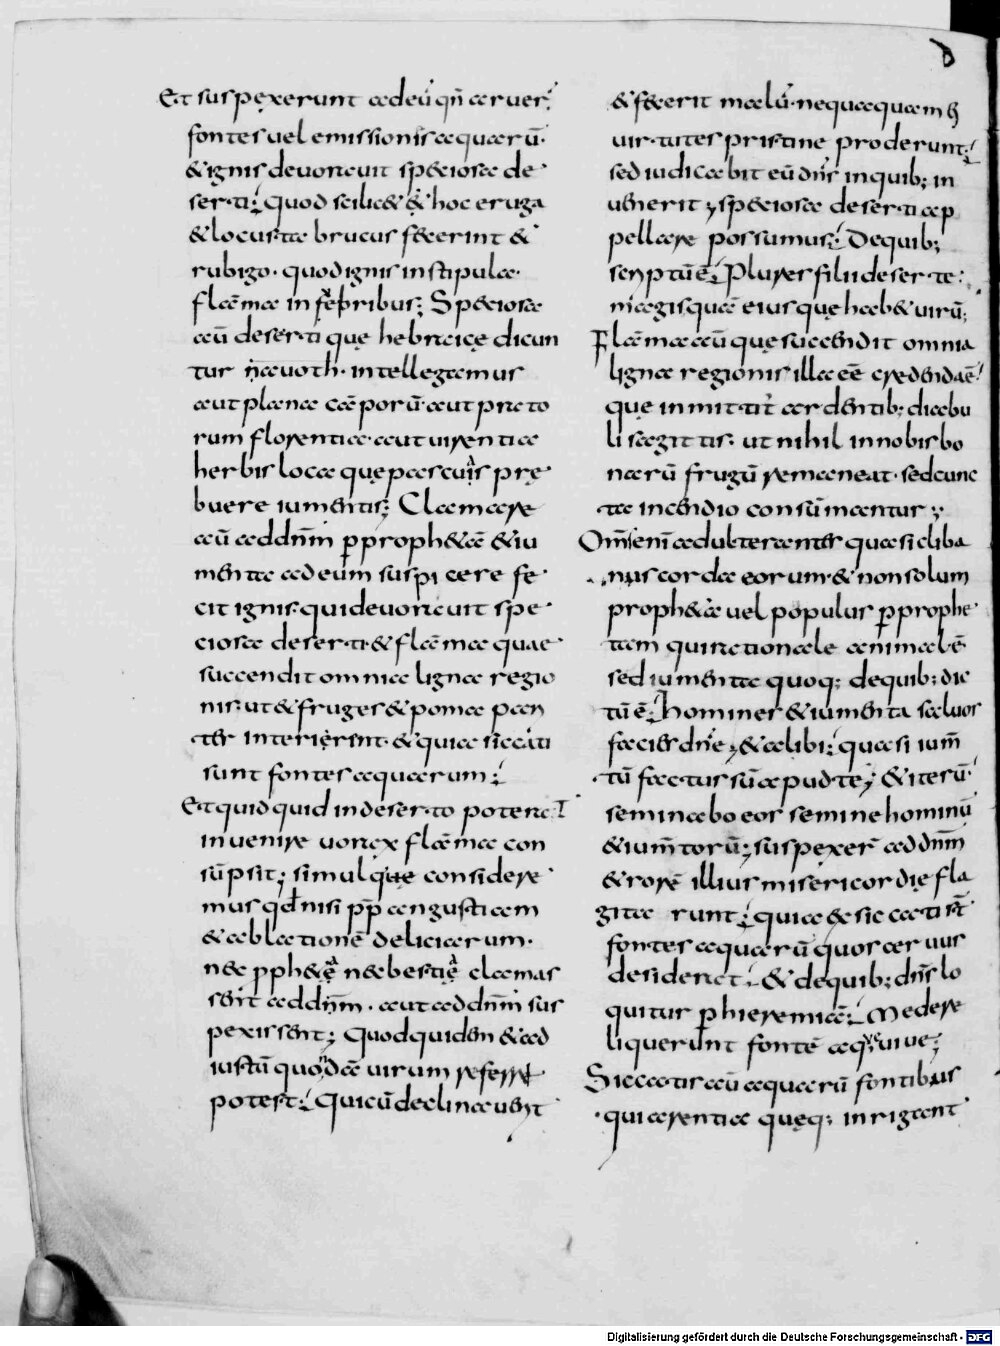 Et suspexerunt ad eū qn̄ aruer̄
fontes uel emissionis aquarū·
&ignis deuorauit speciosa de
serti; quod scilic& & hoc eruga
& locusta brucus fecerint &
rubigo· quod ignis in stipula·
flāma in febribus; Speciosa
aū deserti quę hebraicę dicun
tur nauoth· intellegamus
aut plana cāporū· aut prato
rum florentia· aut uirentia
herbis loca quę pascuis prę
buere iumentis; Clamare
aū ad dn̄m p proph&ā & iu
menta ad eum suspicere fe
cit ignis· qui deuorauit spe
ciosa deserti· & flāma quae
succendit omnia ligna regio
nis· ut & fruges & poma pari
ter interierint· & quia siccati
sunt fontes aquarum;
Et quidquid in deserto poterat
inuenire uorax flāma con
sūpsit; simulque considere
mus qđ nisi pp̄ angustiam
& ablationē deliciarum·
nec pph&ę nec bestię clamas
sent ad dn̄m· aut ad dn̄m sus
pexissent; Quod quidem & ad
iustū quondā uirum referri
potest; Qui cū declinauerit
& fecerit malū· nequaquam ei
uirtutes pristine proderunt;
sed iudicabit eū dn̄s in quib; in
uenerit; speciosa deserti ap
pellare possumus; De quib;
scriptū ē; Plures filii deserte
magis quā eius quę hab& uirū;
Flāma aū quę succendit omnia
ligna regionis illa eē credenda ē·
quę inmittit̄ ardentib; diabu
li sagittis· ut nihil in nobis bo
narū frugū remaneat· sed cunc
ta incendio consūmantur;
Om̄s enī adulterantes quasi cliba
nus corda eorum· & non solum
proph&a uel populus p prophe
tam qui rationale animal ē
sed iumenta quoq; de quib; dic
tū ē; Homines & iumenta saluos
facies dn̄e; & alibi; quasi ium̄
tū factus sū apud te; & iterū
seminabo eos semine hominū
& ium̄torū; suspexer̄ ad dn̄m
& rorē illius misericordię fla
gitarunt; quia & siccati st̄
fontes aquarū quos ceruus
desiderat; & de quib; dn̄s lo
quitur p hieremiā; Me dere
liquerunt fontē aquę uiuę;
Siccatis aū aquarū fontibus
qui arentia quęq; inrigant
Digitalisierung gefördert durch die Deutsche Forschungsgemeinschaft - DFG